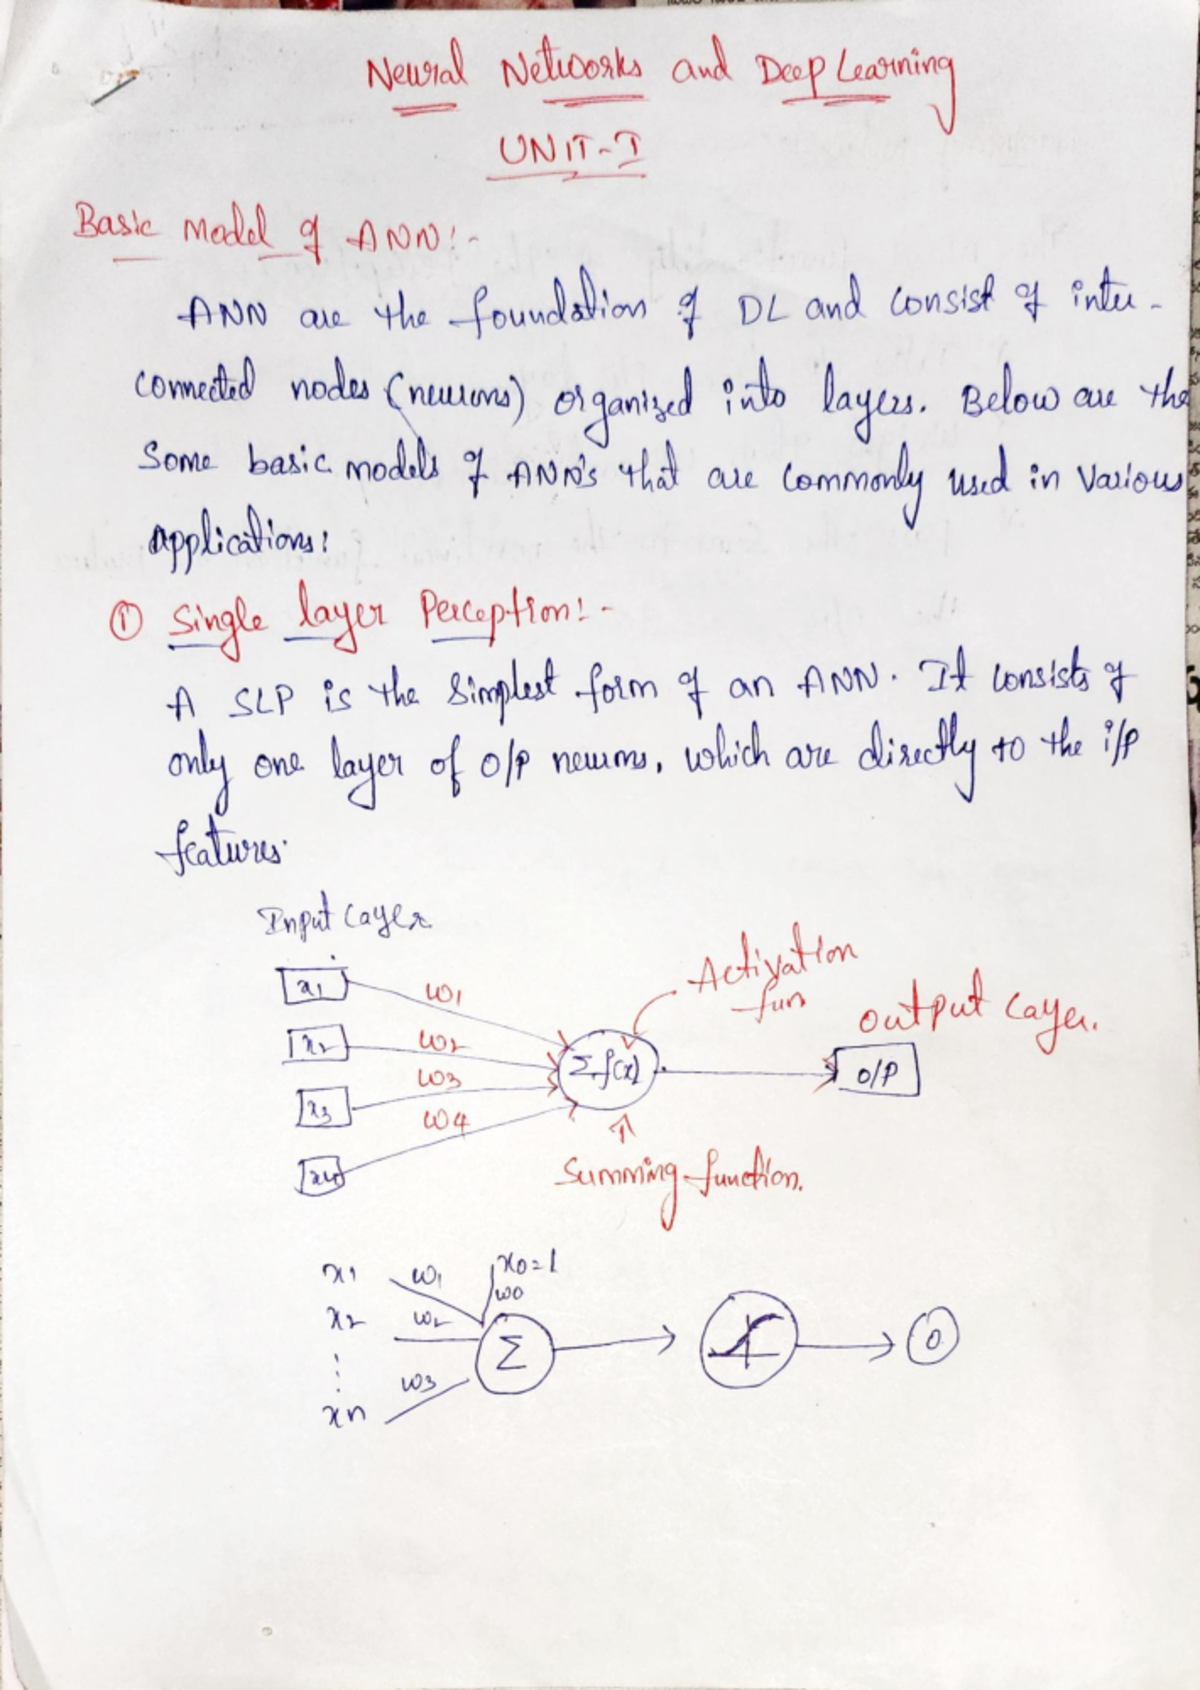 Neural Networks and Deep Learning
UNIT-I
Basic Model of ANN:-
ANN are the foundation of DL and consist of inter-
connected nodes (neurons) organized into layers. Below are the
Some basic models of ANN's that are commonly used in various
applications:
① Single layer Perception:-
A SLP is the simplest form of an ANN. It consists of
only one layer of o/p neurons, which are directly to the i/p
features.
Input Layer
Activation
fun
Output Layer.
x1 w1
x2 w2
x3 w3
x4 w4
Σ f(x)
O/P
Summing function.
x1 w1 x0=1
w0
x2 w2
Σ
0
⋮
w3
xn